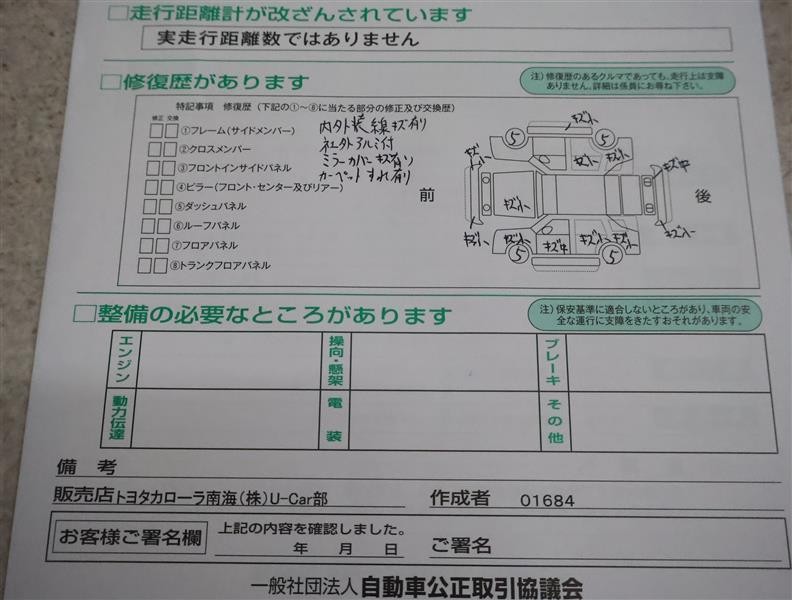 □走行距離計が改ざんされています
実走行距離数ではありません
□修復歴があります
注)修復歴のあるクルマであっても、走行上は支障
ありません。詳細は係員にお尋ね下さい。
特記事項 修復歴(下記の①～⑧に当たる部分の修正及び交換歴)
修正 交換
①フレーム(サイドメンバー)
②クロスメンバー
③フロントインサイドパネル
④ピラー(フロント・センター及びリアー)
⑤ダッシュパネル
⑥ルーフパネル
⑦フロアパネル
⑧トランクフロアパネル
内外装線キズ有り
社外アルミ付
ミラーカバーキズ有り
カーペットすれ有り
前
後
キズ小
5
5
キズ小
キズ小
キズ小
キズ中
キズ小
キズ小
キズ小
キズ中
キズ小
キズ小
キズ小
5
5
□整備の必要なところがあります
注)保安基準に適合しないところがあり、車両の安
全な運行に支障をきたすおそれがあります。
エンジン
操向・懸架
ブレーキ
動力伝達
電装
その他
備考
販売店 トヨタカローラ南海(株)U-Car部
作成者 01684
お客様ご署名欄
上記の内容を確認しました。
年 月 日
ご署名
一般社団法人 自動車公正取引協議会